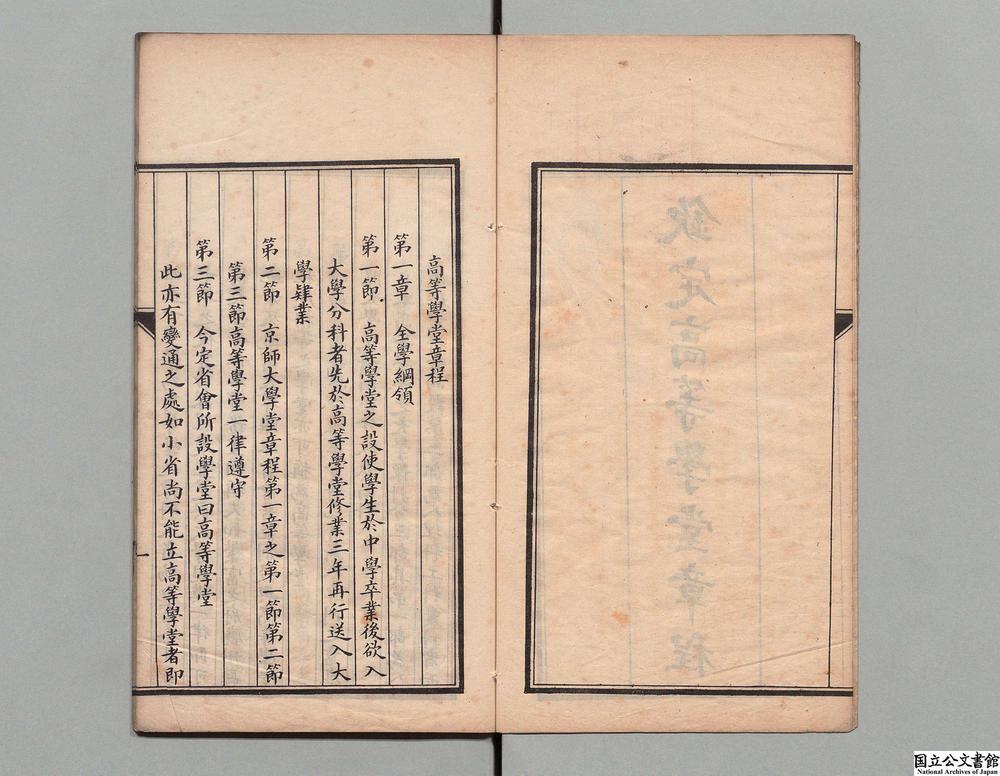 欽定高等學堂章程
高等學堂章程
第一章　全學綱領
第一節　高等學堂之設使學生於中學卒業後欲入
大學分科者先於高等學堂修業三年再行送入大
學肄業
第二節　京師大學堂章程第一章之第一節第二節
第三節高等學堂一律遵守
第三節　今定省會所設學堂曰高等學堂
此亦有變通之處如小省尚不能立高等學堂者即
一
国立公文書館
National Archives of Japan